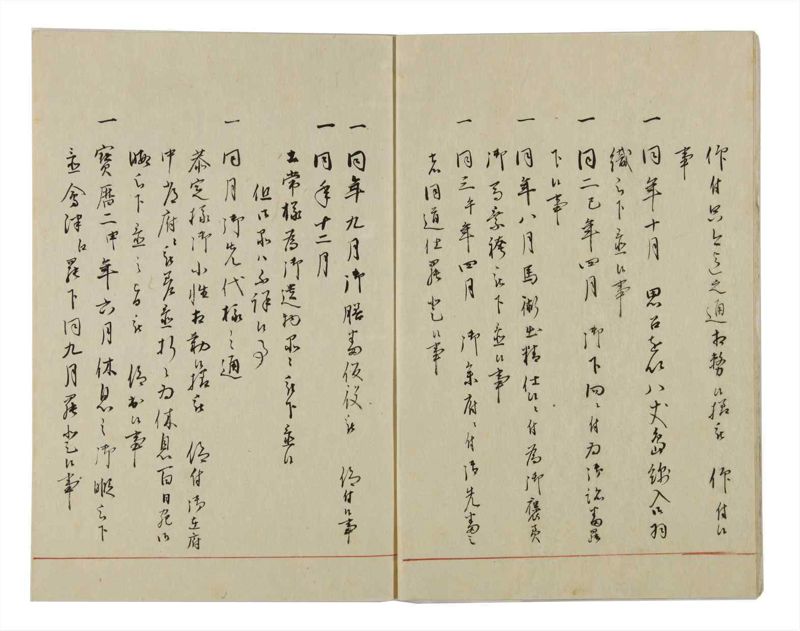 仰付只今迄之通相勤候様被 仰付候
事
一 同年十月 思召を以八丈嶋綿入御羽
織被下置候事
一 同二巳年四月 御下向ニ付為御詰番罷
下候事
一 同年八月馬術出精仕候ニ付為御褒美
御馬乗袴被下置候事
一 同三午年四月 御参府ニ付御先番ニ
而同道仕罷登候事
一 同年九月御膳番仮役被 仰付候事
一 同年十二月
土常様為御遺物品々被下置候
但御品ハ不詳候事
一 同月御先代様之通
恭定様御小性相勤候様被 仰付御在府
中者府ニ被差置折々為休息百日宛御
暇被下置之旨被 仰出候事
一 寳暦二申年六月休息之御暇被下
置會津江罷下同九月罷登候事